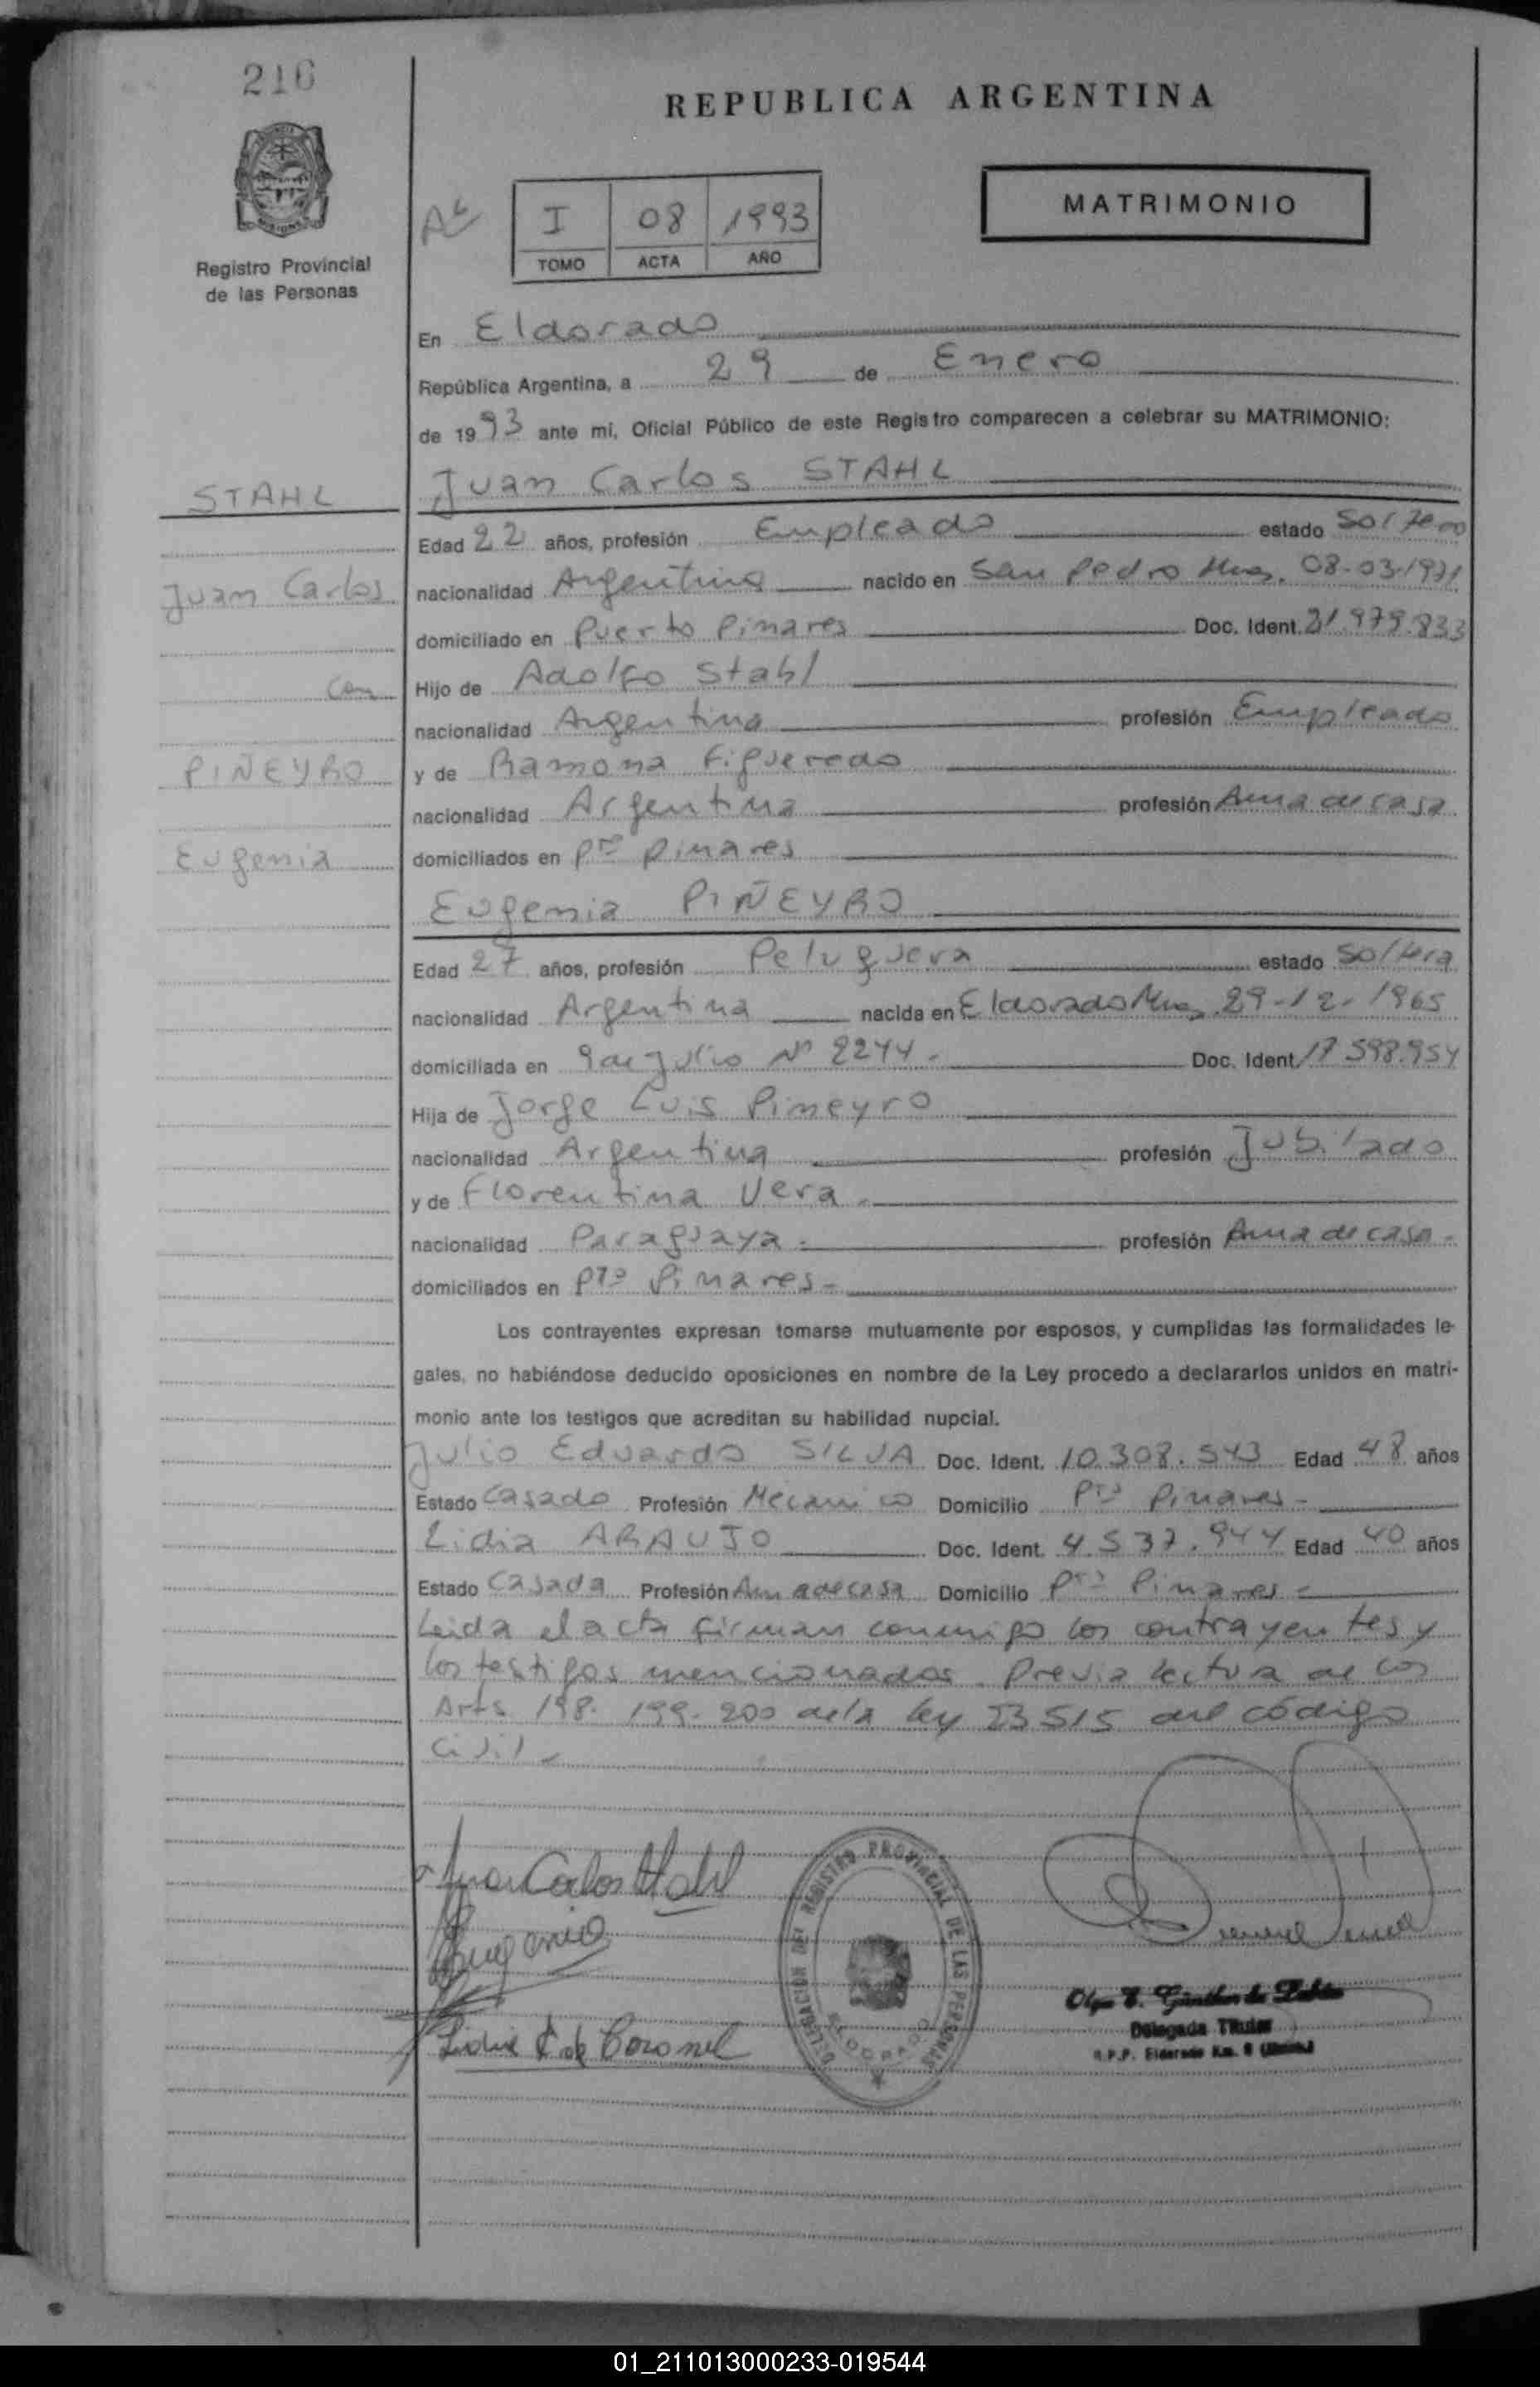 216
REPUBLICA ARGENTINA
MATRIMONIO
I 08 1993
TOMO ACTA AÑO
Registro Provincial
de las Personas
En Eldorado
República Argentina, a 29 de Enero
de 1993 ante mí, Oficial Público de este Registro comparecen a celebrar su MATRIMONIO:
STAHL
Juan Carlos STAHL
Edad 22 años, profesión Empleado estado Soltero
Juan Carlos
nacionalidad Argentina nacido en San Pedro Mnes. 08-03-1971
domiciliado en Puerto Pinares Doc. Ident. 21.979.833
con
Hijo de Adolfo Stahl
nacionalidad Argentina profesión Empleado
PIÑEYRO
y de Ramona Figueredo
nacionalidad Argentina profesión Ama de casa
Eugenia
domiciliados en Pto Pinares
Eugenia PIÑEYRO
Edad 27 años, profesión Peluquera estado Soltera
nacionalidad Argentina nacida en Eldorado Mnes 29-12-1965
domiciliada en 9 de Julio Nº 2244.- Doc. Ident. 17.598.954
Hija de Jorge Luis Pineyro
nacionalidad Argentina profesión Jubilado
y de Florentina Vera.-
nacionalidad Paraguaya.- profesión Ama de casa-
domiciliados en Pto Pinares-
Los contrayentes expresan tomarse mutuamente por esposos, y cumplidas las formalidades le-
gales, no habiéndose deducido oposiciones en nombre de la Ley procedo a declararlos unidos en matri-
monio ante los testigos que acreditan su habilidad nupcial.
Julio Eduardo SILVA Doc. Ident. 10.308.543 Edad 48 años
Estado Casado Profesión Mecanico Domicilio Pto Pinares-
Lidia ARAUJO Doc. Ident. 4.537.944 Edad 40 años
Estado Casada Profesión Ama de casa Domicilio Pto Pinares-
Leida el acta firman conmigo los contrayentes y
los testigos mencionados. Previa lectura de los
Arts 198. 199. 200 de la ley 23515 del código
Civil-
Juan Carlos Stahl
Eugenia
Lidia A de Coronel
DELEGACION DEL REGISTRO PROVINCIAL DE LAS PERSONAS
ELDORADO
Delegada Titular
R.P.P. Eldorado Km. 9
01_211013000233-019544